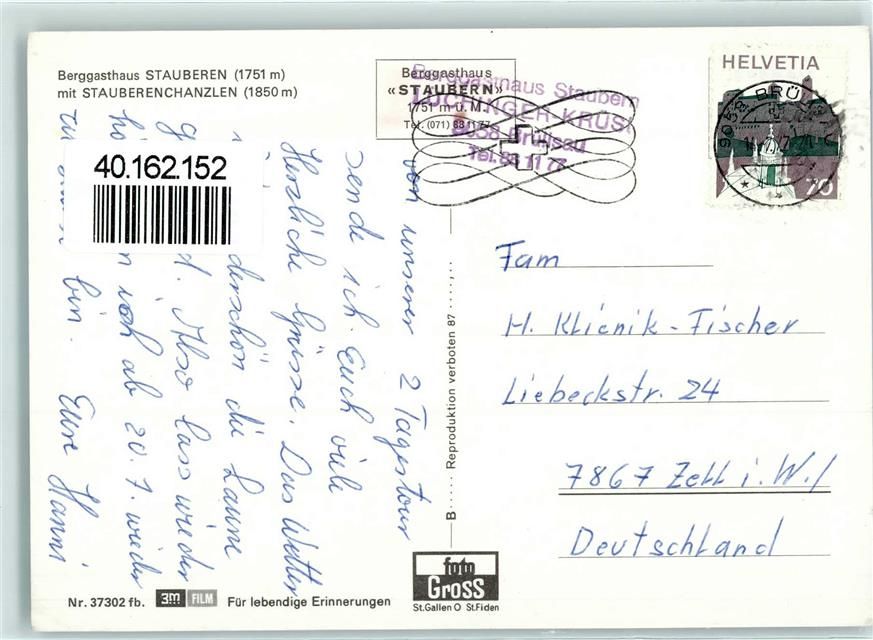 Berggasthaus STAUBEREN (1751 m)
mit STAUBERENCHANZLEN (1850 m)
Berggasthaus
«STAUBERN»
1751 m ü.M.
Tel. (071) 88 11 77
Berggasthaus Staubern
LÜCHINGER KRÜSI
9058 Brülisau
Tel. 88 11 77
HELVETIA
70
9058 BRÜ
40.162.152
von unserer 2 Tagestour
sende ich Euch viele
Herzliche Grüsse. Das Wetter
derschön die Laune
Also lass wieder
ich ab 20. 7. wieder
bin. Eure Hanni
Fam
H. Klienik-Fischer
Liebeckstr. 24
7867 Zell i. W./
Deutschland
B ..... Reproduktion verboten 87
Nr. 37302 fb. 3M FILM Für lebendige Erinnerungen
foto
Gross
St.Gallen O St.Fiden